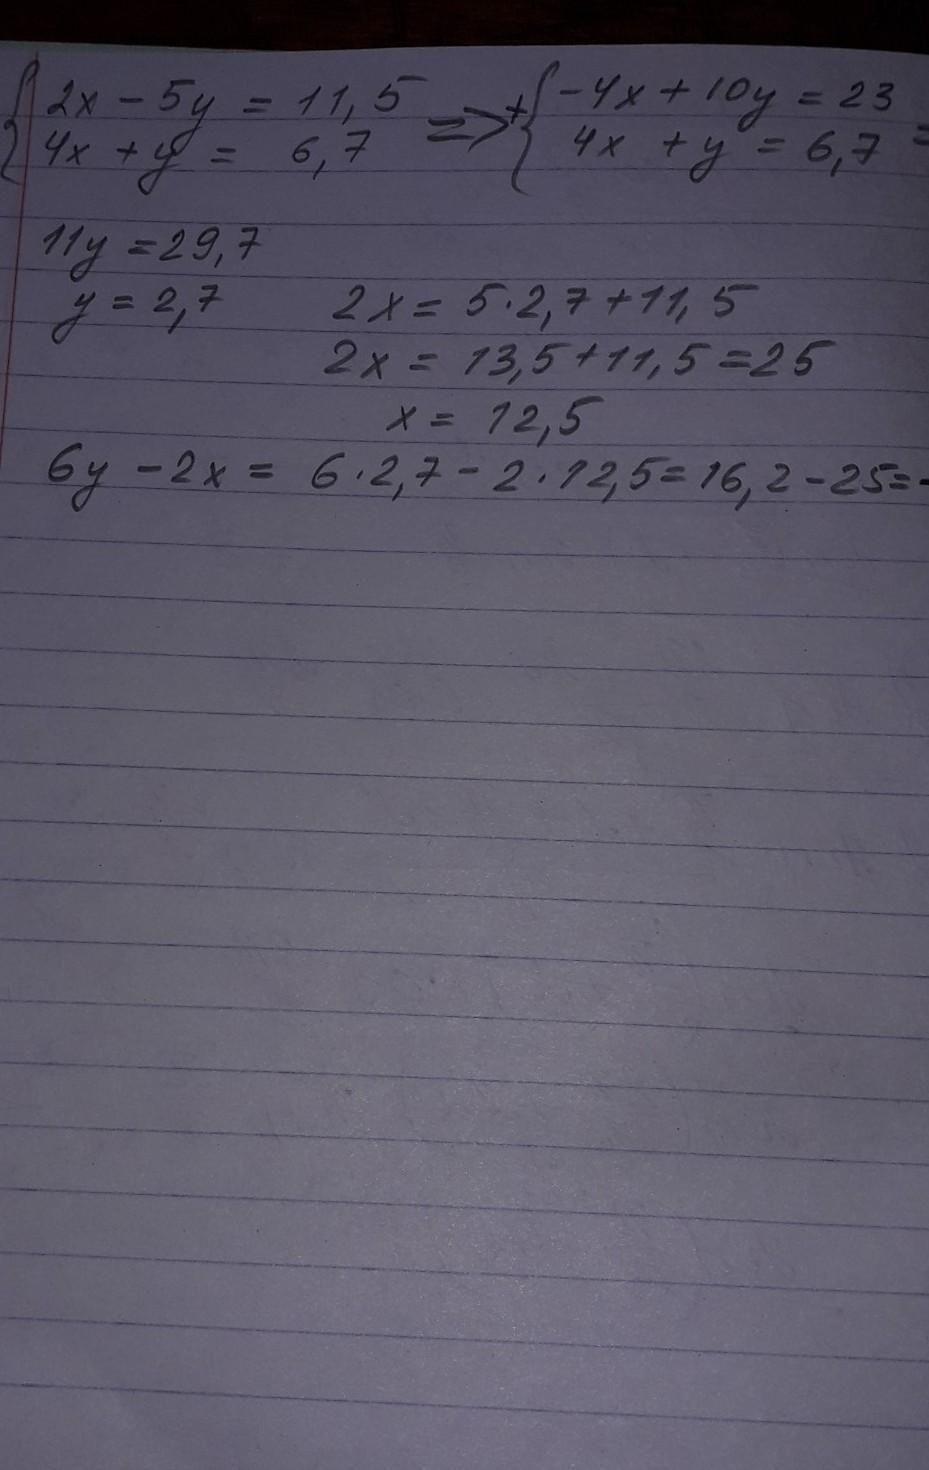 { 2x - 5y = 11,5 => + { -4x + 10y = 23 =
4x + y = 6,7 4x + y = 6,7
11y = 29,7
y = 2,7 2x = 5·2,7 + 11,5
2x = 13,5 + 11,5 = 25
x = 12,5
6y - 2x = 6·2,7 - 2·12,5 = 16,2 - 25 = -